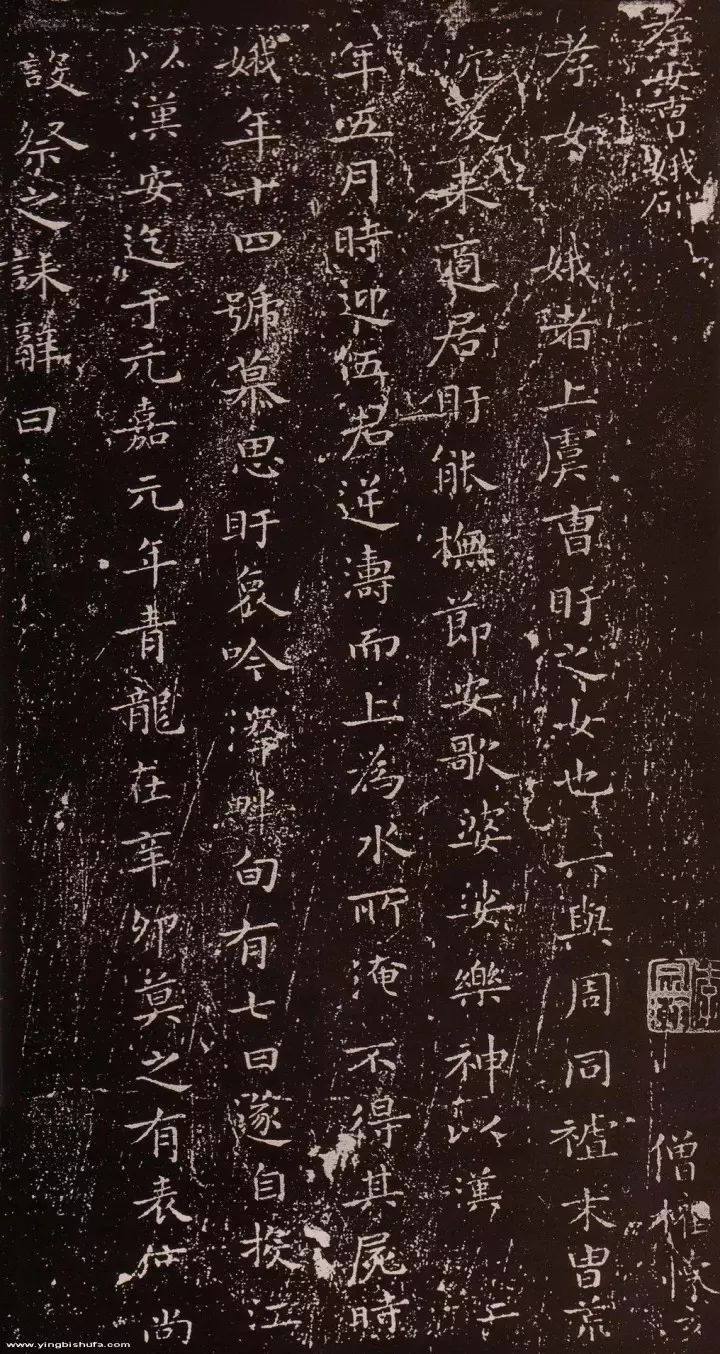 孝女曹娥碑
孝女 娥者上虞曹盱之女也其先與周同祖末胄荒
沉爰来適居盱能撫節安歌婆娑樂神以漢 二
年五月時迎伍君逆濤而上為水所淹 不得其屍時
娥年十四號慕思盱哀吟澤畔旬有七日遂自投江
以漢安迄于元嘉元年青龍在辛卯莫之有表 尚
設祭之誄辭曰
僧權
www.yingbishufa.com